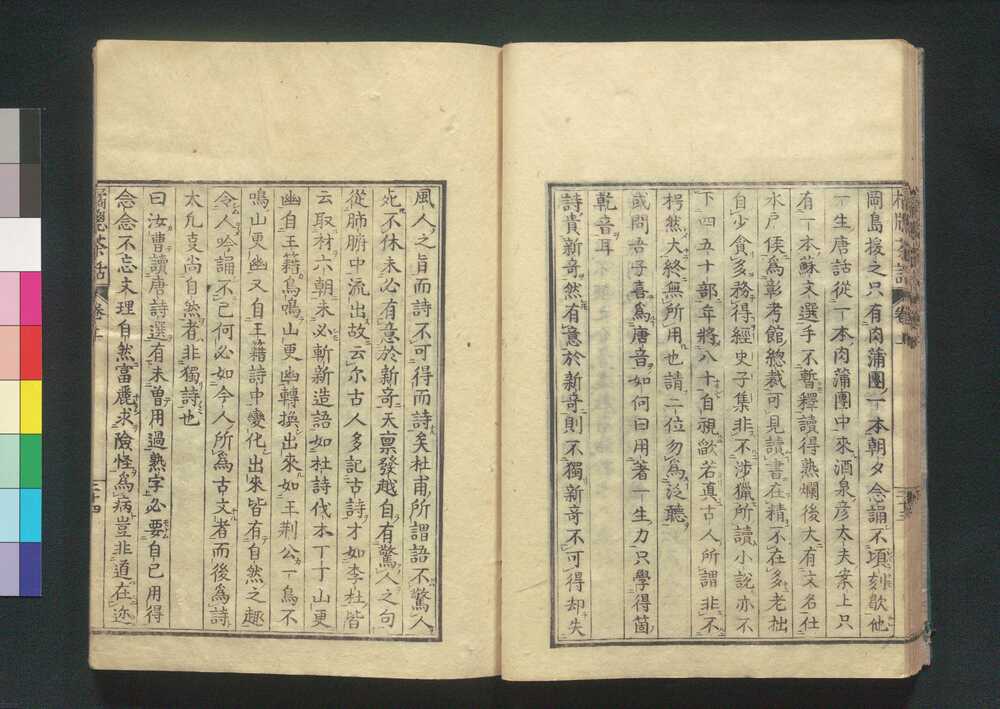 岡島援之只有肉蒲團一本朝夕念誦不頃刻歇他
一生唐話從一本肉蒲團中來酒泉彦太夫案上只
有一本蘇文選手不暫釋讀得熟爛後大有文名仕
水戸侯為彰考館總裁可見讀書在精不在多老拙
自少貪多務得經史子集非不涉獵所讀小說亦不
下四五十部年將八十自視欿若真古人所謂非不
枵然大終無所用也請二位勿為泛聽
或問君子喜為唐音如何曰用著一生力只學得箇
乾音耳
詩貴新奇然有意於新奇則不獨新奇不可得却失
風人之旨而詩不可得而詩矣杜甫所謂語不驚人
死不休未必有意於新奇天禀發越自有驚人之句
從肺腑中流出故云尓古人多記古詩才如李杜皆
云取材六朝未必斬新造語如杜詩伐木丁丁山更
幽自王籍鳥鳴山更幽轉換出來如王荆公一鳥不
鳴山更幽又自王籍詩中變化出來皆有自然之趣
令人吟誦不已何必如今人所為古文者而後為詩
大凡文尚自然者非獨詩也
曰汝曹讀唐詩選有未曽用過熟字必要自己用得
念念不忘文理自然富麗求險怪為病豈非道在迩
橘窓茶話
卷上
三十四